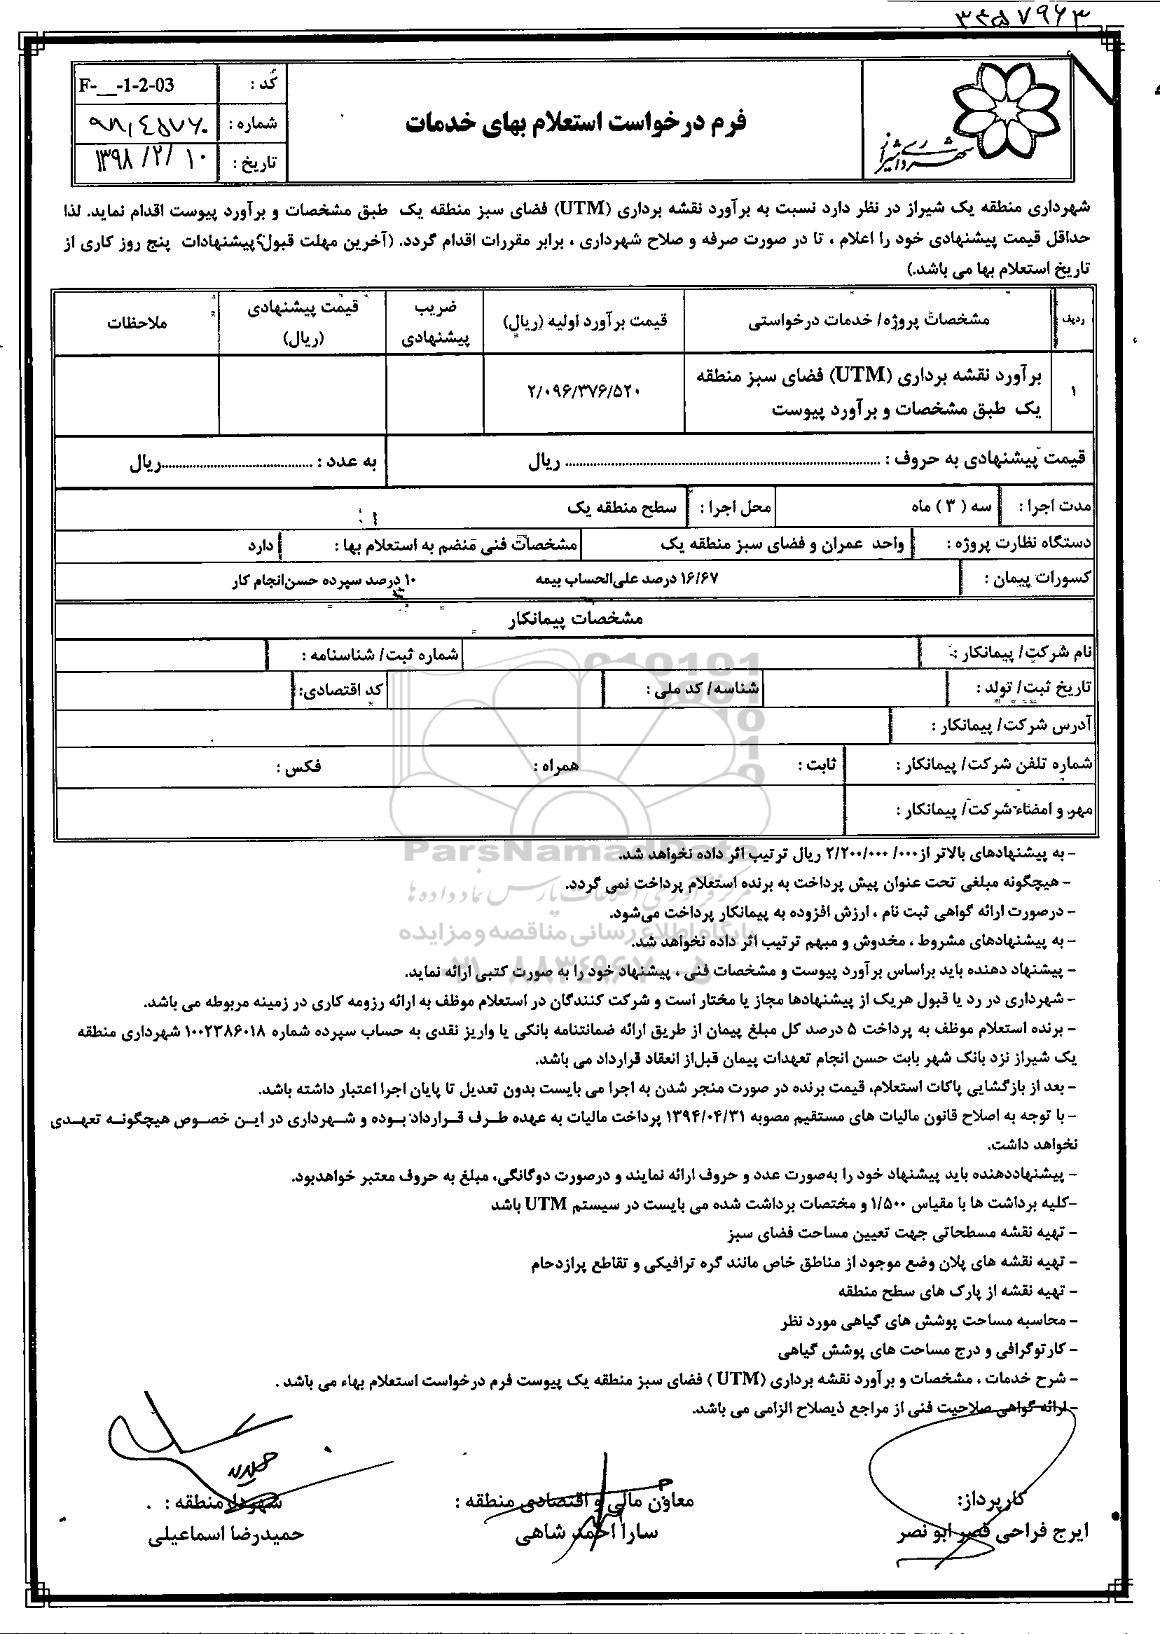 ۳۲۵۷۹۶۳
شهرداری شیراز
فرم درخواست استعلام بهای خدمات
کد : F-__-1-2-03
شماره :
تاریخ : ۱۳۹۸/۲/۱۰
شهرداری منطقه یک شیراز در نظر دارد نسبت به برآورد نقشه برداری (UTM) فضای سبز منطقه یک طبق مشخصات و برآورد پیوست اقدام نماید. لذا
حداقل قیمت پیشنهادی خود را اعلام ، تا در صورت صرفه و صلاح شهرداری ، برابر مقررات اقدام گردد. (آخرین مهلت قبول پیشنهادات پنج روز کاری از
تاریخ استعلام بها می باشد.)
ردیف | مشخصات پروژه/ خدمات درخواستی | قیمت برآورد اولیه (ریال) | ضریب پیشنهادی | قیمت پیشنهادی (ریال) | ملاحظات
۱ | برآورد نقشه برداری (UTM) فضای سبز منطقه | ۲/۰۹۶/۳۷۶/۵۲۰
یک طبق مشخصات و برآورد پیوست
قیمت پیشنهادی به حروف : ........................ ریال به عدد : ........................ریال
مدت اجرا : سه ( ۳ ) ماه محل اجرا : سطح منطقه یک
دستگاه نظارت پروژه : واحد عمران و فضای سبز منطقه یک مشخصات فنی منضم به استعلام بها : دارد
کسورات پیمان : ۱۶/۶۷ درصد علی‌الحساب بیمه ۱۰ درصد سپرده حسن‌انجام کار
مشخصات پیمانکار
نام شرکت/ پیمانکار : شماره ثبت/ شناسنامه :
تاریخ ثبت/ تولد : شناسه/ کد ملی : کد اقتصادی:
آدرس شرکت/ پیمانکار :
شماره تلفن شرکت/ پیمانکار : ثابت : همراه : فکس :
مهر و امضاء شرکت/ پیمانکار :
ParsNamadData
پایگاه اطلاع رسانی مناقصه و مزایده
- به پیشنهادهای بالاتر از ۲/۲۰۰/۰۰۰/۰۰۰ ریال ترتیب اثر داده نخواهد شد.
- هیچگونه مبلغی تحت عنوان پیش پرداخت به برنده استعلام پرداخت نمی گردد.
- درصورت ارائه گواهی ثبت نام ، ارزش افزوده به پیمانکار پرداخت می‌شود.
- به پیشنهادهای مشروط ، مخدوش و مبهم ترتیب اثر داده نخواهد شد.
- پیشنهاد دهنده باید براساس برآورد پیوست و مشخصات فنی ، پیشنهاد خود را به صورت کتبی ارائه نماید.
- شهرداری در رد یا قبول هریک از پیشنهادها مجاز یا مختار است و شرکت کنندگان در استعلام موظف به ارائه رزومه کاری در زمینه مربوطه می باشد.
- برنده استعلام موظف به پرداخت ۵ درصد کل مبلغ پیمان از طریق ارائه ضمانتنامه بانکی یا واریز نقدی به حساب سپرده شماره ۱۰۰۲۳۸۶۰۱۸ شهرداری منطقه
یک شیراز نزد بانک شهر بابت حسن انجام تعهدات پیمان قبل‌از انعقاد قرارداد می باشد.
- بعد از بازگشایی پاکات استعلام، قیمت برنده در صورت منجر شدن به اجرا می بایست بدون تعدیل تا پایان اجرا اعتبار داشته باشد.
- با توجه به اصلاح قانون مالیات های مستقیم مصوبه ۱۳۹۴/۰۴/۳۱ پرداخت مالیات به عهده طرف قرارداد بوده و شهرداری در این خصوص هیچگونه تعهدی
نخواهد داشت.
- پیشنهاددهنده باید پیشنهاد خود را به‌صورت عدد و حروف ارائه نمایند و درصورت دوگانگی، مبلغ به حروف معتبر خواهدبود.
-کلیه برداشت ها با مقیاس ۱/۵۰۰ و مختصات برداشت شده می بایست در سیستم UTM باشد
- تهیه نقشه مسطحاتی جهت تعیین مساحت فضای سبز
- تهیه نقشه های پلان وضع موجود از مناطق خاص مانند گره ترافیکی و تقاطع پرازدحام
- تهیه نقشه از پارک های سطح منطقه
- محاسبه مساحت پوشش های گیاهی مورد نظر
- کارتوگرافی و درج مساحت های پوشش گیاهی
- شرح خدمات ، مشخصات و برآورد نقشه برداری (UTM ) فضای سبز منطقه یک پیوست فرم درخواست استعلام بهاء می باشد .
- ارائه گواهی صلاحیت فنی از مراجع ذیصلاح الزامی می باشد.
کارپرداز: معاون مالی و اقتصادی منطقه : شهردار منطقه :
ایرج فراحی قصر ابو نصر سارا احمد شاهی حمیدرضا اسماعیلی